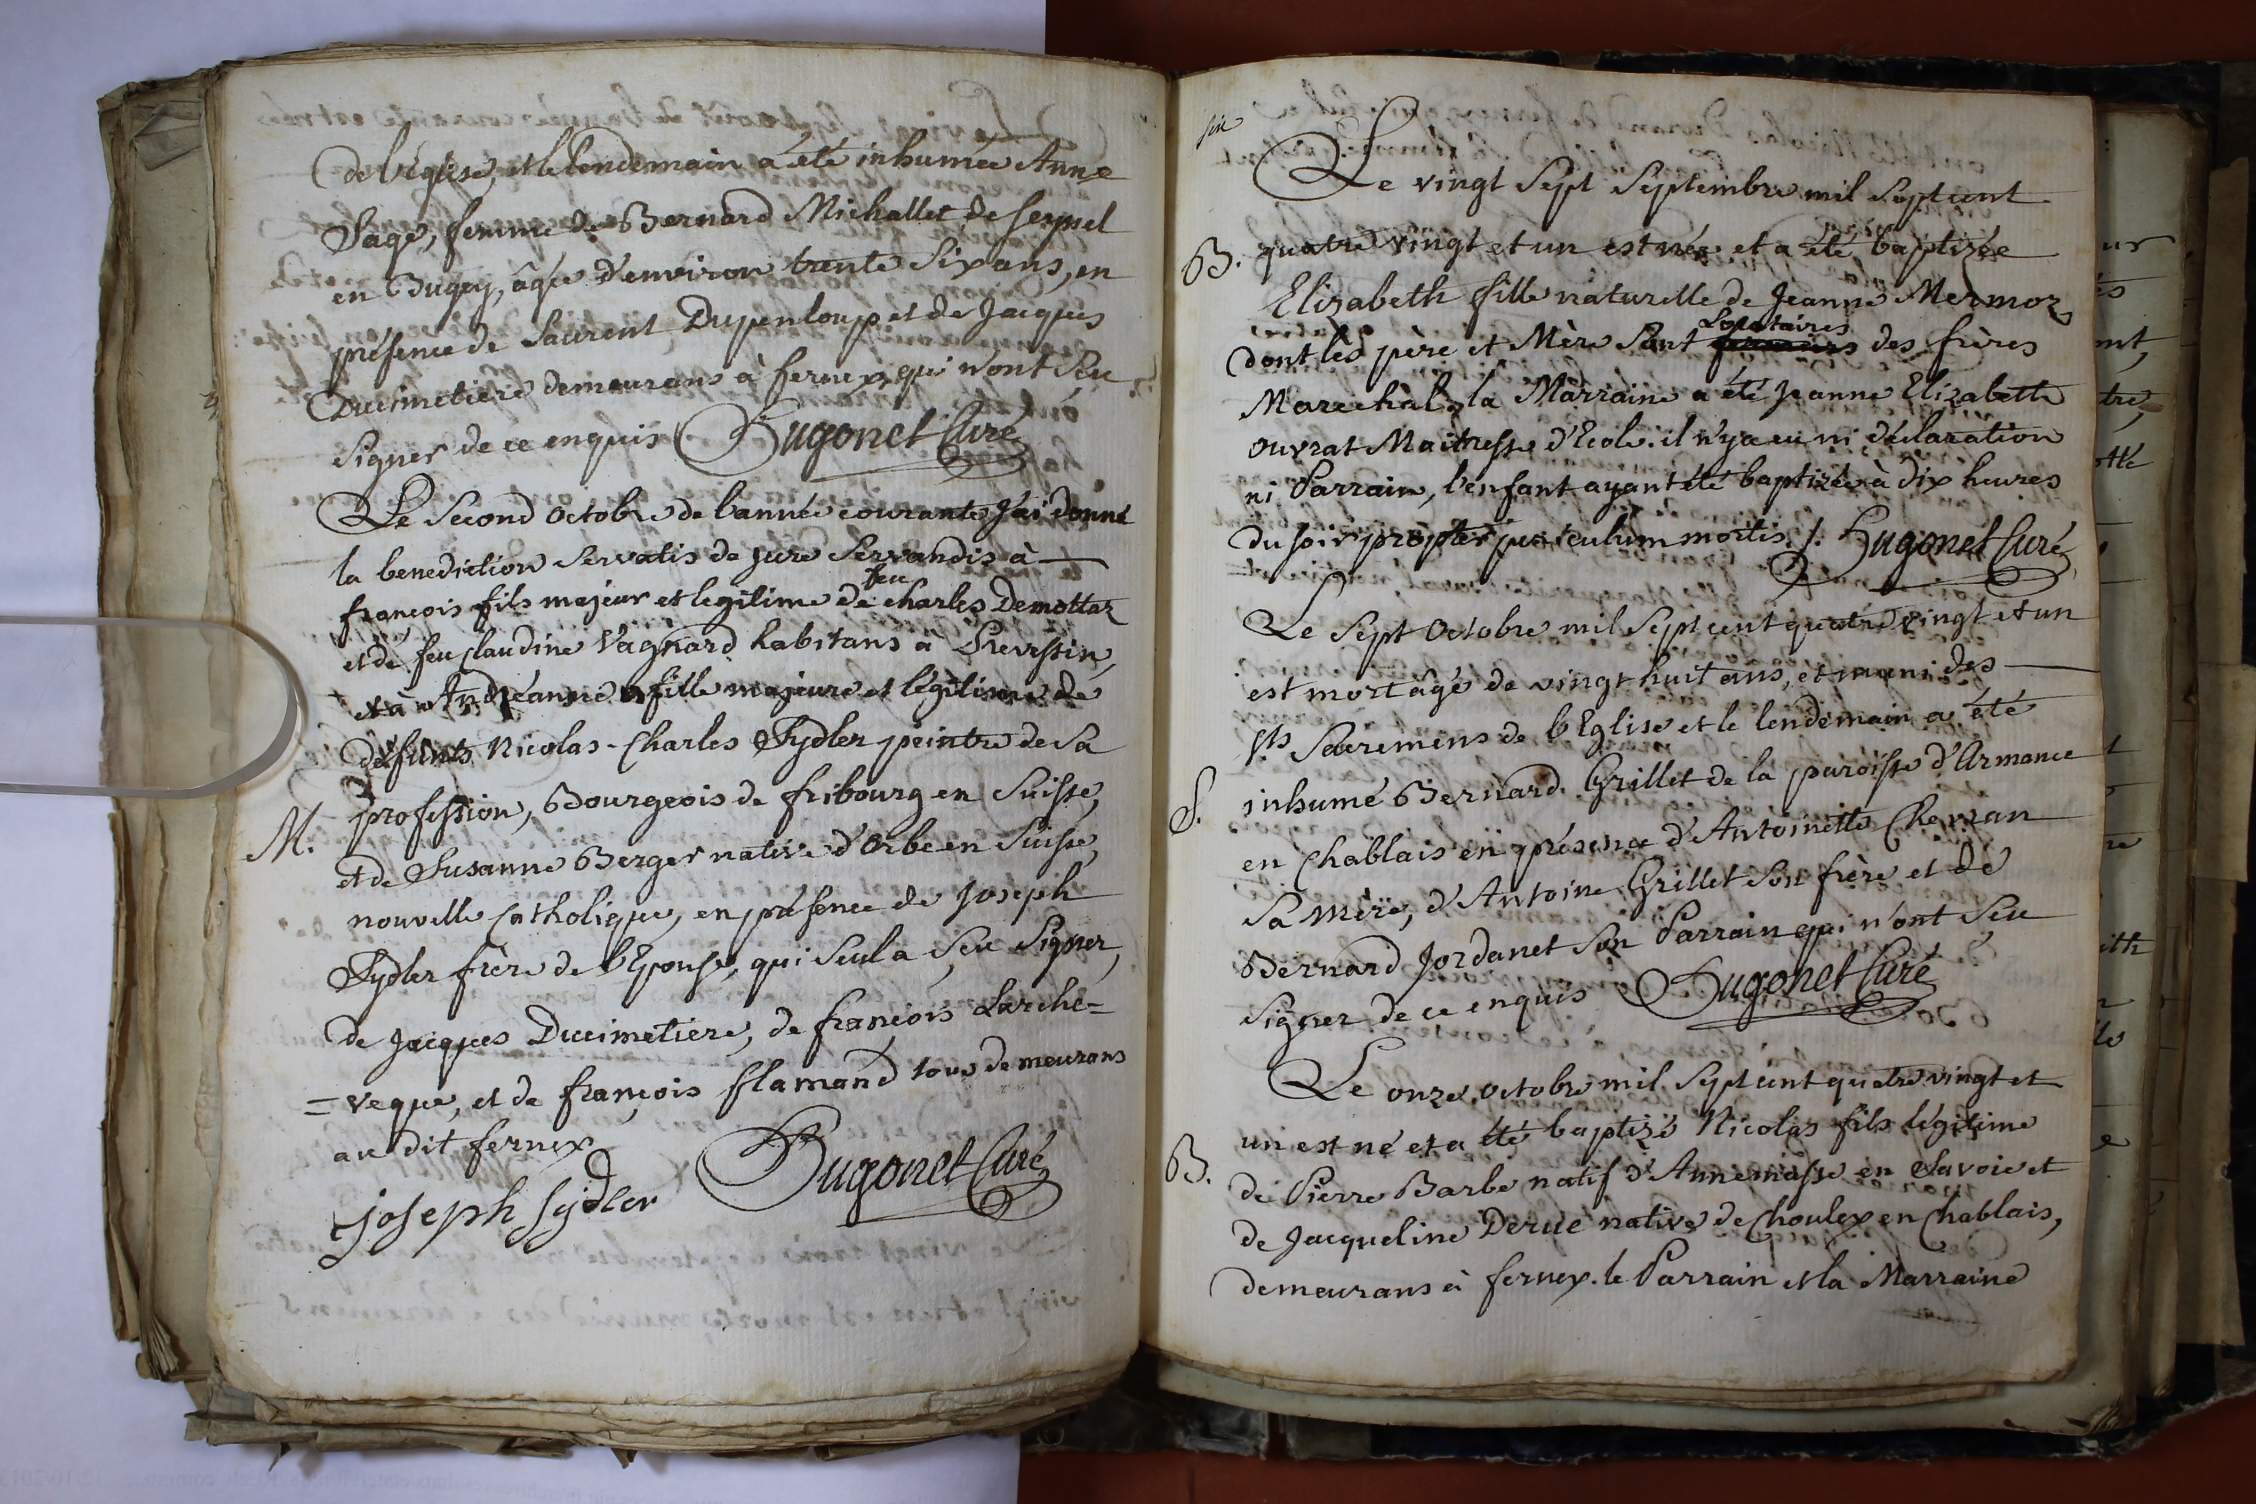 de l'église, et le lendemain a été inhumée Anne
Sage, femme de Bernard Michallet de seyssel
en Bugey, âgée d'environ trente Six ans, en
présence de Laurent Dupenloup et de Jacques
Ducimetiere demeurans à fernex, qui n'ont Seu
Signer de ce enquis Hugonet Curé
Le Second octobre de l'année courante J'ai donné
la benediction Servatis de Jure Servandis à
feu
françois fils majeur et legitime de charles Demottaz
et de feu claudine Vagnard habitans à Prevessin,
et à Andréanne fille majeure et légitime de
défunts Nicolas-Charles Sydler peintre de sa
M. profession, Bourgeois de fribourg en Suisse,
et de Susanne Berger native d'orbe en Suisse,
nouvelle Catholique, en présence de Joseph
Sydler frère de l'Epouse, qui Seul a Seu Signer,
de Jacques Ducimetiere, de françois Larche=
=veque, et de françois flamand tous demeurans
au dit fernex
joseph sydler Hugonet Curé
six
Le vingt Sept Septembre mil Sept cent
B. quatre vingt et un est née et a été baptizée
Elizabeth fille naturelle de Jeanne Mermoz
Locataires
dont les père et Mère Sont fermiers des frères
Marechal, la Marraine a été Jeanne Elizabeth
ouvrat Maitresse d'Ecole. il n'y a eu ni déclaration
ni Parrain, l'enfant ayant été baptizée à dix heures
du soir propter periculum mortis. /. Hugonet Curé
Le Sept Octobre mil Sept cent quatre vingt et un
est mort âgé de vingt huit ans, et muni des
sts Sacremens de l'Eglise et le lendemain a été
S. inhumé Bernard Grillet de la paroisse d'Armance
en Chablais en présence d'Antoinette
Sa Mère, d'Antoine Grillet Son frère et de
Bernard Jordanet Son Parrain qui n'ont Seu
Signer de ce enquis Hugonet Curé
Le onze octobre mil Sept cent quatre vingt et
un est né et a été baptizé Nicolas fils légitime
B. de Pierre Barbe natif d'Annemasse en Savoie et
de Jacqueline Derue native de Choulex en Chablais,
demeurans à fernex. le Parrain et la Marraine